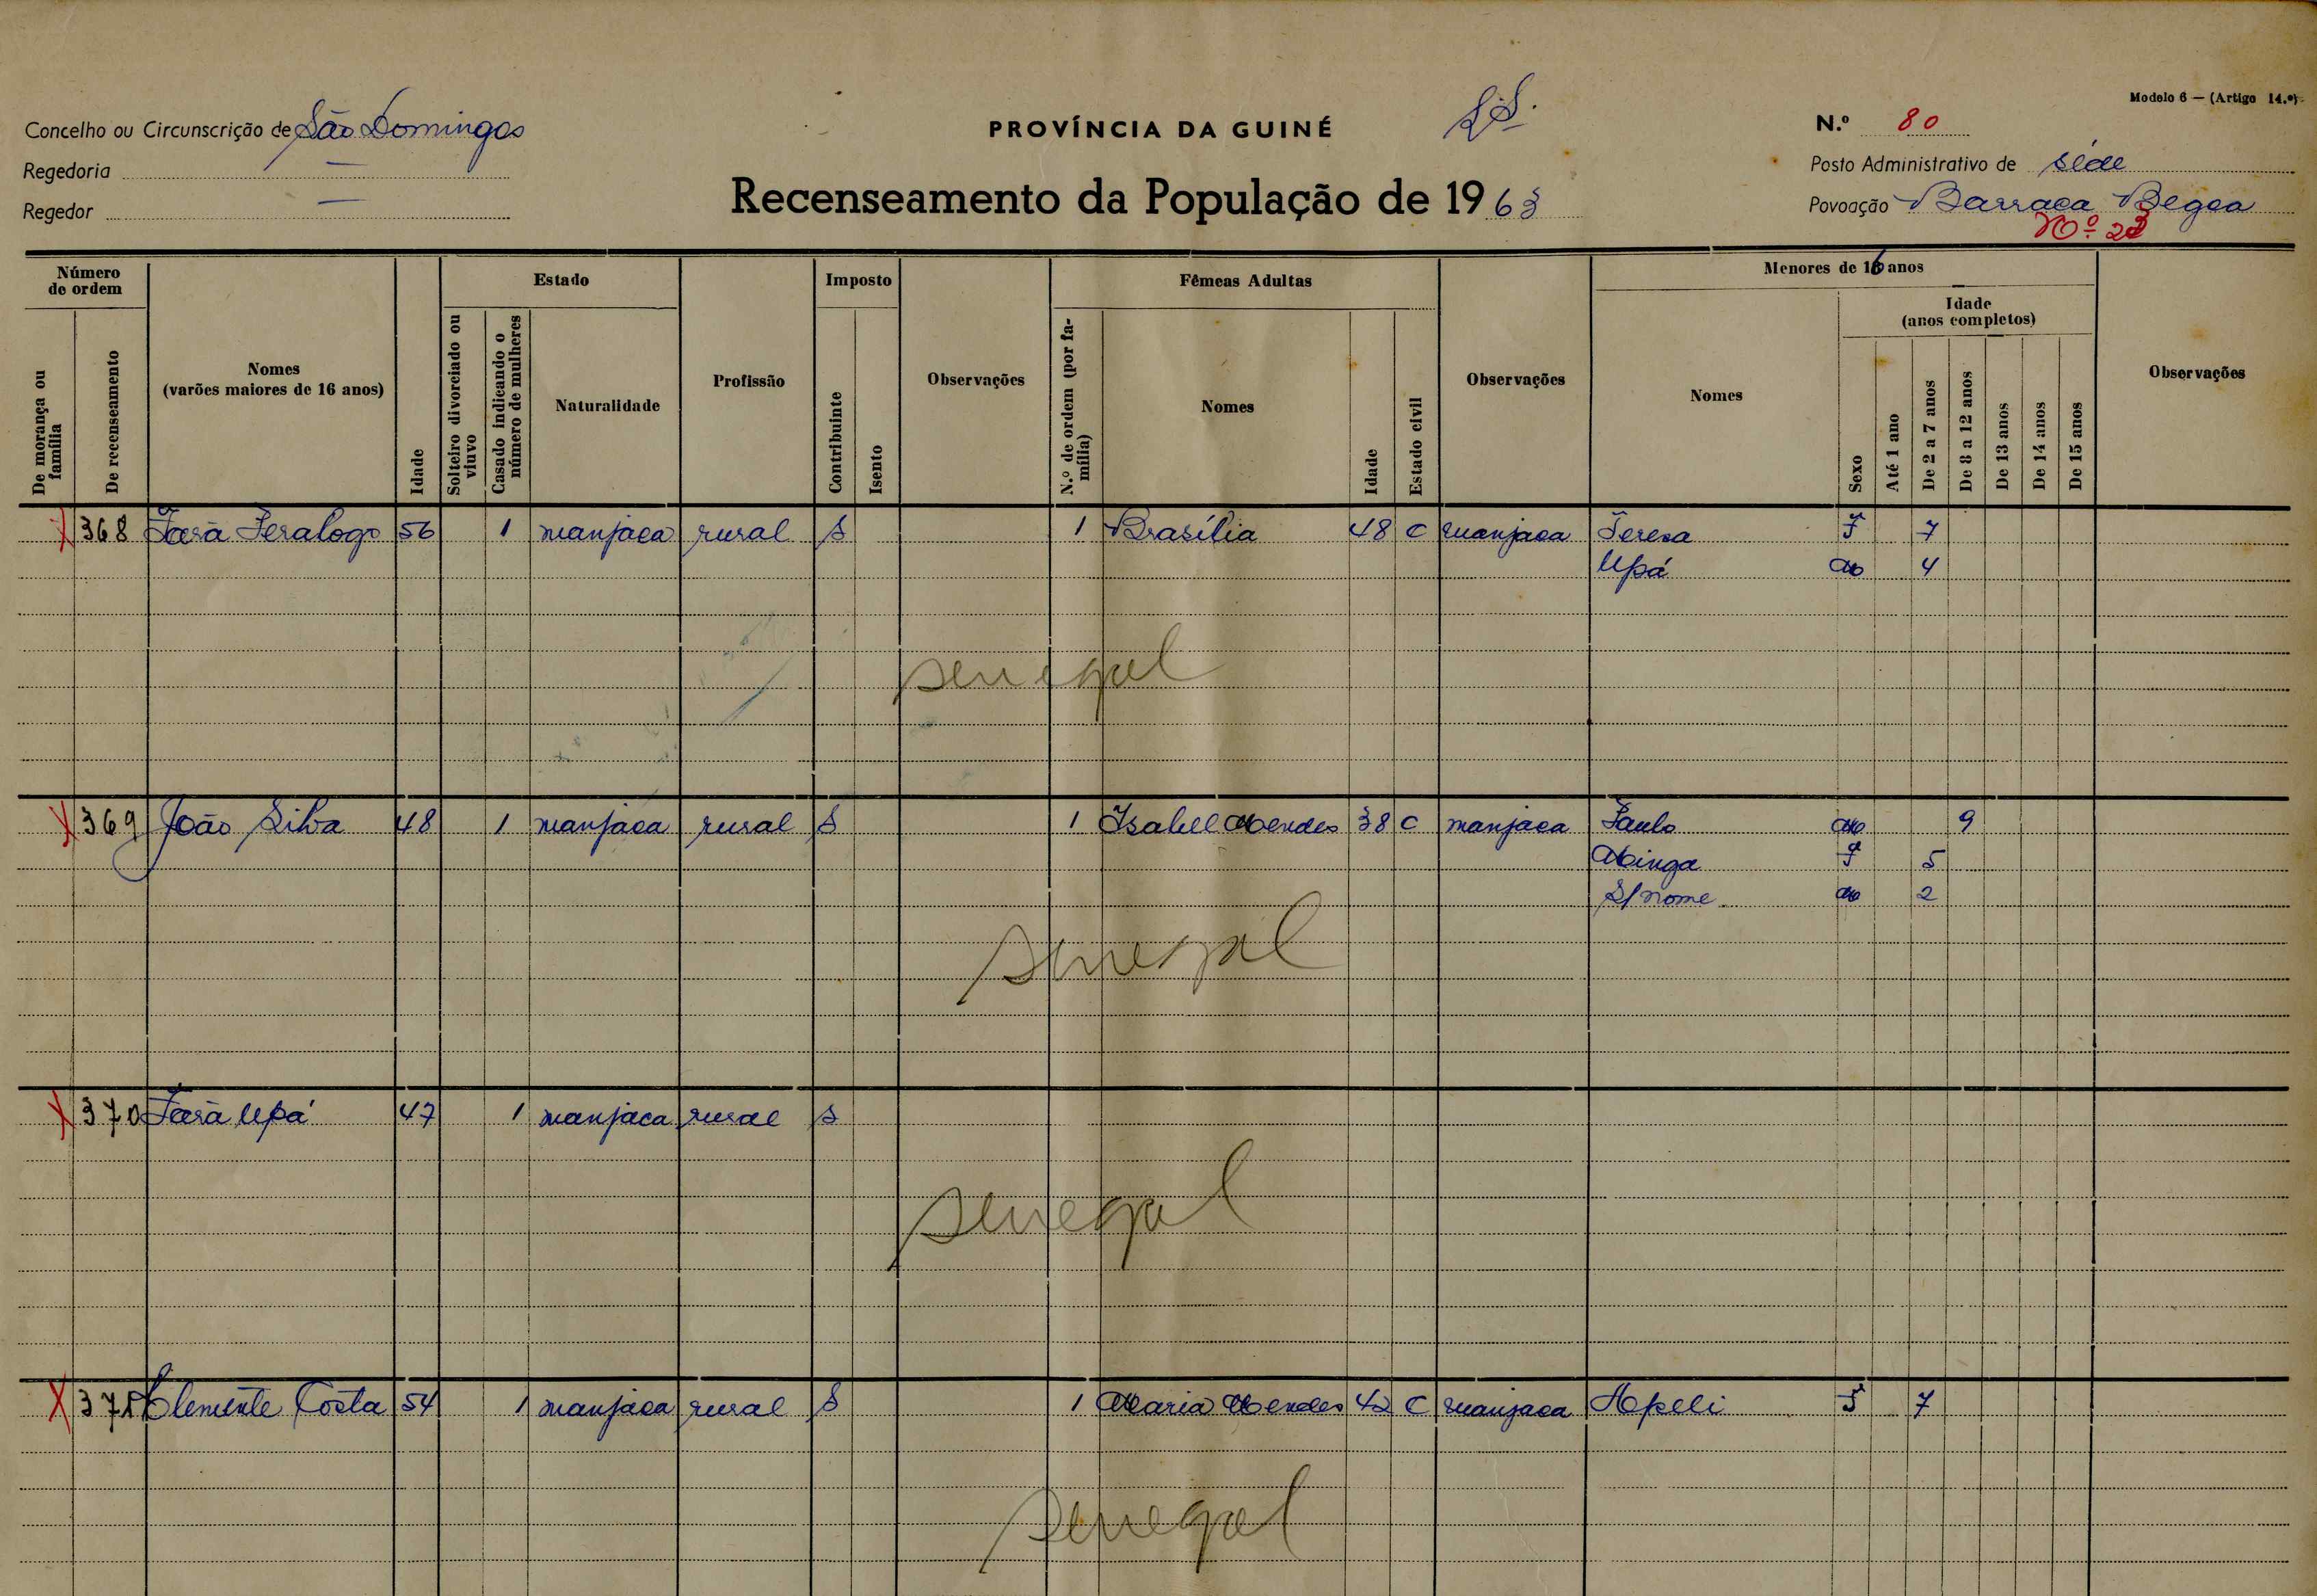 Modelo 6 — (Artigo 14.º)
Concelho ou Circunscrição de São Domingos
PROVÍNCIA DA GUINÉ
N.º 80
Regedoria —
Posto Administrativo de séde
Regedor —
Recenseamento da População de 1963
Povoação Barraca Begea
Nº
Número de ordem
De morança ou família
De recenseamento
Nomes
(varões maiores de 16 anos)
Idade
Estado
Solteiro divorciado ou viuvo
Casado indicando o número de mulheres
Naturalidade
Profissão
Imposto
Contribuinte
Isento
Observações
Fêmeas Adultas
N.º de ordem (por família)
Nomes
Idade
Estado civil
Observações
Menores de 16 anos
Nomes
Sexo
Idade
(anos completos)
Até 1 ano
De 2 a 7 anos
De 8 a 12 anos
De 13 anos
De 14 anos
De 15 anos
Observações
X 368 56 1 manjaca rural S 1 Brasília 48 C manjaca Teresa F 7
Upá M 4
senegal
X 369 João Silva 48 1 manjaca rural S 1 Isabel Mendes 38 C manjaca Paulo M 9
Minga F 5
S/ nome M 2
senegal
X 370 Upá 47 1 manjaca rural S
senegal
X 371 Clemente Costa 54 1 manjaca rural S 1 Maria Mendes 42 C manjaca F 7
senegal